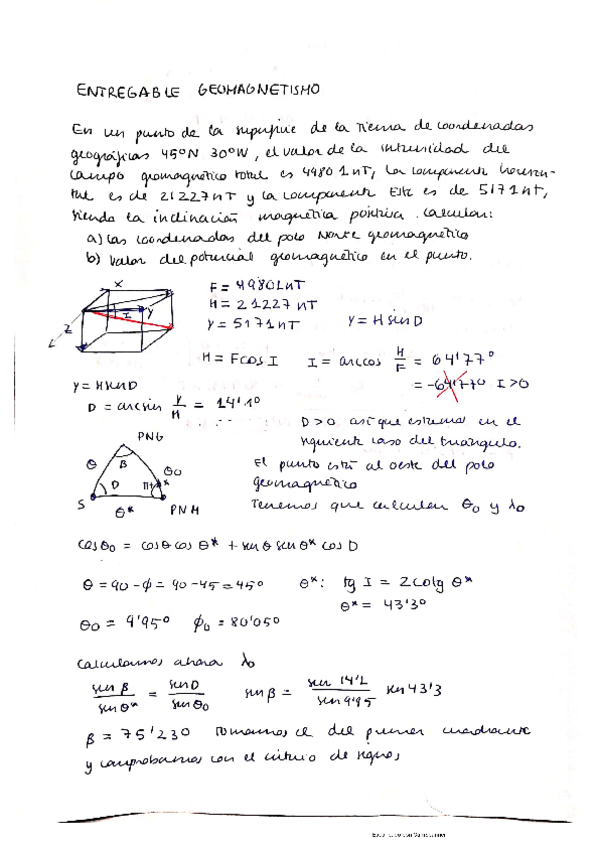 ENTREGABLE GEOMAGNETISMO
En un punto de la superficie de la Tierra de coordenadas
geográficas 45°N 30°W, el valor de la intensidad del
campo geomagnético total es 49801nT, la componente horizon-
tal es de 21227nT y la componente Este es de 5171nT,
siendo la inclinación magnética positiva. Calcular:
a) Las coordenadas del polo Norte geomagnético
b) Valor del potencial geomagnético en el punto.
X
I
Y
Z
F = 49801nT
H = 21227 nT
Y = 5171nT Y = H sin D
H = F cos I I = arccos H/F = 64'77°
= -64'77° I>0
Y = H sin D
D = arcsin Y/H = 14'1°
D>0 así que estamos en el
siguiente caso del triángulo.
PNG
θ B θ0
D
S θ* PNM
El punto está al oeste del polo
geomagnético
Tenemos que calcular θ0 y λ0
cos θ0 = cos θ cos θ* + sen θ sen θ* cos D
θ = 90 - ϕ = 90 - 45 = 45° θ*: tg I = 2 cotg θ*
θ* = 43'3°
θ0 = 9'95° ϕ0 = 80'05°
Calculamos ahora λ0
sen β / sen θ* = sen D / sen θ0 sen β = sen 14'1 / sen 9'95 sen 43'3
β = 75'23° Tomamos el del primer cuadrante
y comprobamos con el criterio de signos